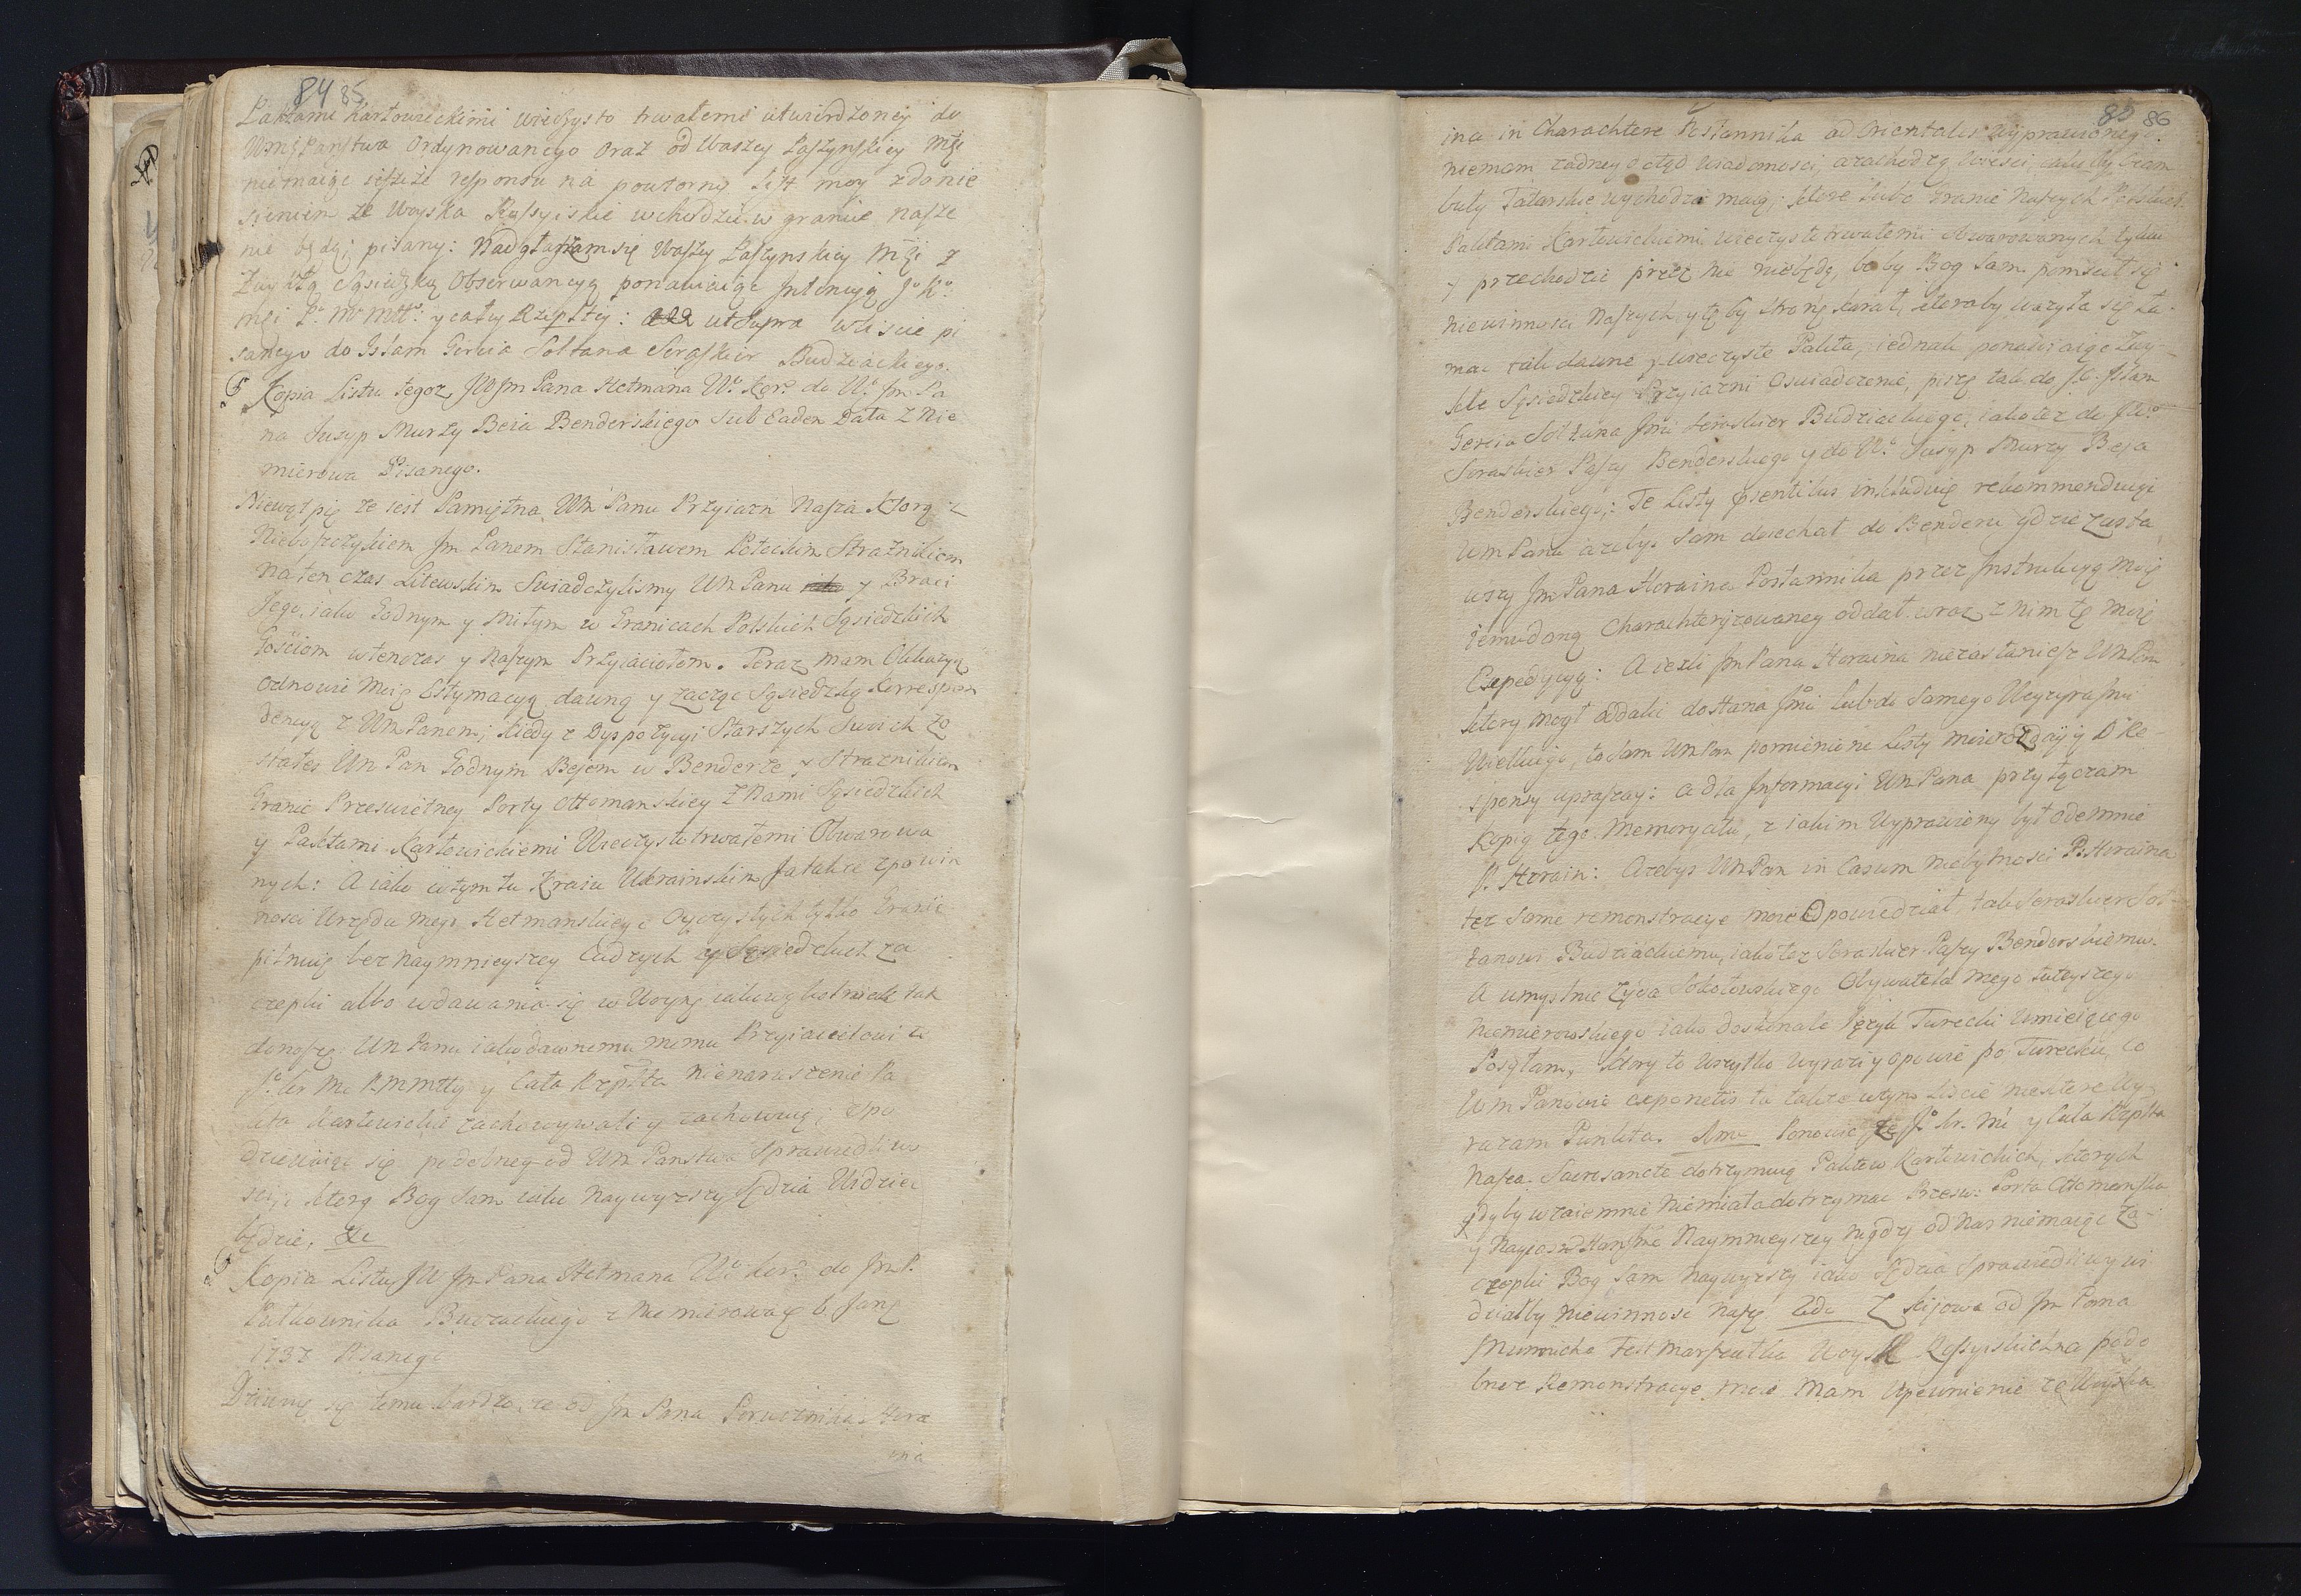 84 85
Paktami Karłowickimi wieczysto trwałemi utwierdzoney do
Ordynowanego oraz od Waszey Paszynskiey Mśći
niemaiąc ieszcze responsu na powtorny list moy z donie
sieniem ze Woyska Rossyiskie wchodzić w granice nasze
nie będą; pisany: Nadgłaszam się Waszey Paszynskiey Mśći z
Zwykłą Sąsiedzką Obserwancyą ponawiaiąc Intencyą
y całey Rzeptey: ut Supra w liscie pi
sanego do Islam Gereia Sołtana Seraskier Budziackiego.
Kopia Listu tegoz JW Jm Pana Hetmana Wo Kor: do Wo Jm Pa
na Jusyp Murzy Beia Benderskiego Sub Eadem Data z Nie
mierowa Pisanego.
Niewątpię ze iest Pamiętna Wm Panu Przyiazn Nasza Ktorą z
Nieboszczykiem Jm Panem Stanisławem Potockim Straznikiem
na ten czas Litewskim Swiadczylismy Wm Panu y Braci
Jego, iako Godnym y Miłym w Granicach Polskich Sąsiedzkich
Gościom wtenczas y Naszym Przyiaciołom. Teraz mam Okkazyą
odnowić Moię Estymacyą dawną y zacząc Sąsiedzką Korrespon
dencyą z Wm Panem; kiedy z Dyspozycyi Starszych Swoich Zo
stałes Wm Pan Godnym Bejem w Benderze y Straznikiem
Granic Przeswietney Porty Ottomanskiey z Nami Sąsiedzkich
y Paktami Karłowickiemi Wieczysto trwałemi Obwarowa
nych: A iako w tym tu Kraiu Ukrainskim Ja takze z powin
nosci Urzędu mego Hetmanskiego Oyczystych tylko Granic
pilnuię bez naymnieyszey Cudzych y Sąsiedzkich za
czepki albo wdawania się w Woynę iakowąkolwiek tak
donoszę Wm Panu iako dawnemu memu Przyiacielowi ze
y Cała Rzpta nienaruszenie Pa
kta Karłowickie zachowywali y zachowuią; spo
dziewaiąc się podobney od Wm Panstwa Sprawiedliwo
sci, ktorą Bog Sam iako Naywyzszy Sędzia Widziec
będzie. &c
Kopia Listu JW Jm Pana Hetmana Wo Kor: do Jm P.
Pułkownika Buczackiego z Niemirowa 6 Jany
1737 Pisanego
Dziwuię się temu bardzo, ze od Jm Pana Porucznika Hora
ina
85 86
ina in Charachtere Posłannika ad Orientales wyprawionego.
niemam zadney dotąd wiadomosci, a zachodzą wiesci, iakoby Czam
buły Tatarskie wychodzić maią; ktore lubo Granic Naszych Polskich
Paktami Karłowickiemi Wieczysto trwałemi obwarowanych tykać
y przechodzić przez nie niebędą, bo by Bog Sam pomscił się
niewinnosci Naszych, y tę by stronę karał, ktoraby wazyła się ła-
mać tak dawne y wieczyste Pakta, iednak ponawiaiąc Zwy-
kłe Sąsiedzkiey Przyiazni Oswiadczenie, piszę tak do Islam
Gereia Sołtana Jmći Seraskier Budziackiego, iako tez do
Seraskier Paszy Benderskiego y do Wo Jusyp Murzy Beja
Benderskiego: Te Listy includuię rekommenduiąc
Wm Panu azebys Sam doiechał do Benderu gdzie zasta
wszy Jm Pana Horaina Posłannika przez Instrukcyą Moię
Jemu daną Charachteryzowaney oddał wraz z nim tę Moię
Expedycyą: A iezli Jm Pana Horaina niezastaniesz Wm Pan
ktory mogł oddalić do Hana Jmći lub do Samego Wezyra Jmći
Wielkiego, to Sam Wm Pan pomienione Listy Moie oddaj y O Re-
sponsy upraszay: a dla Informacyi Wm Pana przyłączam
Kopią tego Memoryału, z iakim Wyprawiony był odemnie
P. Horain: Azebys Wm Pan in Casum niebytnosci P. Horaina
tez same remonstracye moie Opowiedział, tak Seraskier Soł-
tanowi Budziackiemu, iako tez Seraskier Paszy Benderskiemu.
A umyslnie Zyda Sokołowskiego Obywatela mego tuteyszego
Niemierowskiego iako doskonale Język Turecki Umieiącego
Posyłam, ktory to wszytko wyrazi y opowie po Turecku, co
Wm Panowie exponetis tu takze w tym Liscie niektore Wy-
razam Punkta. 1mo Ponowić ze y Cała Rzpta
Nasza Sacrosancte dotrzymuią Paktow Karłowickich, ktorych
gdyby wzaiemnie niemiała dotrzymać Przesw: Porta Ottomanska
y Nayiasn: Han Naymnieyszey nigdy od Nas niemaiąc Za-
czepki Bog Sam Naywyzszy iako Sędzia Sprawiedliwy wi
działby niewinnosć Naszę 2do Z Kijowa od Jm Pana
Munnicha Felt Marszałka Woysk Rossyiskich na podo
bnez Remonstracye Moie Mam Upewnienie ze Woyska